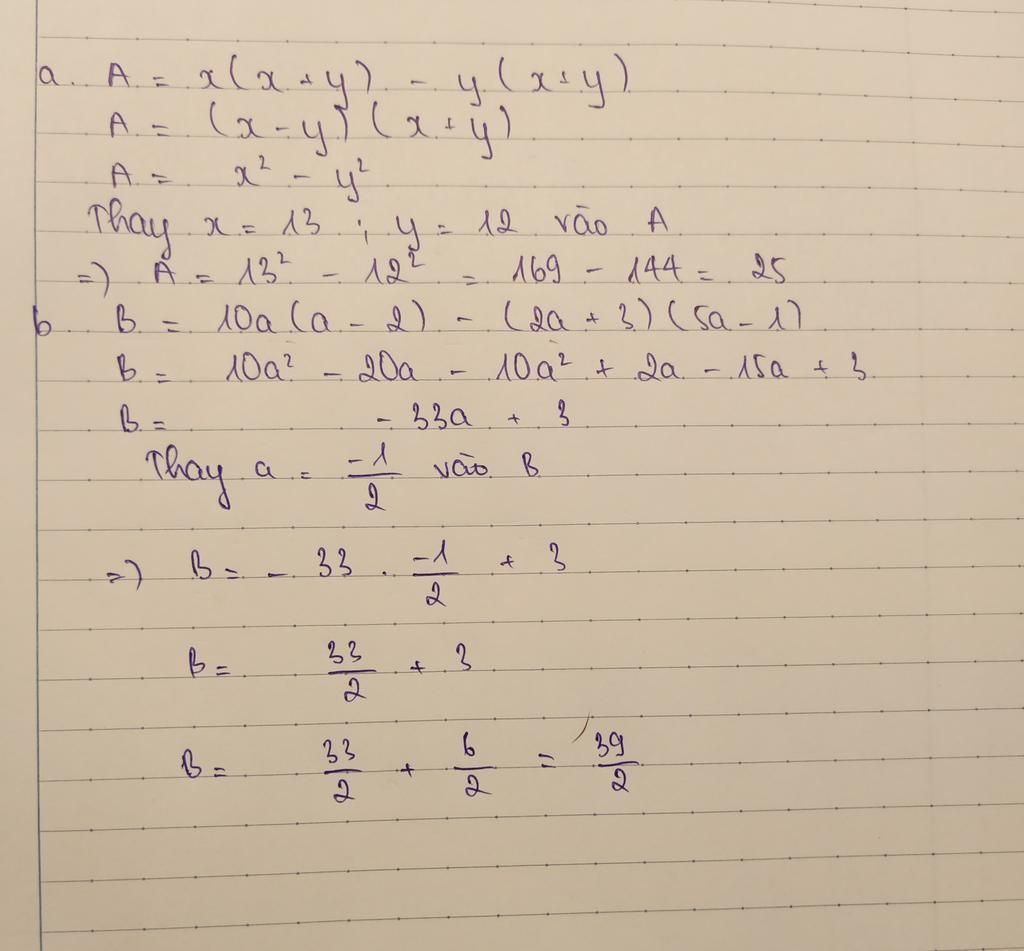 a. A = x(x + y) - y(x + y)
A = (x - y)(x + y)
A = x² - y²
Thay x = 13 ; y = 12 vào A
=) A = 13² - 12² = 169 - 144 = 25
b B = 10a(a - 2) - (2a + 3)(5a - 1)
B = 10a² - 20a - 10a² + 2a - 15a + 3
B = - 33a + 3
Thay a = -1/2 vào B
=) B = - 33 . -1/2 + 3
B = 33/2 + 3
B = 33/2 + 6/2 = 39/2